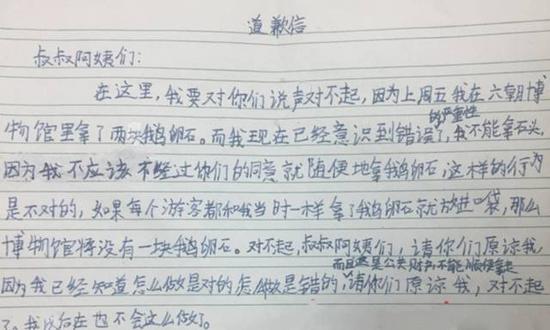 道歉信
叔叔阿姨们:
在这里,我要对你们说声对不起,因为上周五我在六朝博
的严重性
物馆里拿了两块鹅卵石。而我现在已经意识到错误了,我不能拿石头,
因为我不应该不经过你们的同意就随便地拿鹅卵石,这样的行为
是不对的,如果每个游客都和我当时一样拿了鹅卵石就放进口袋,那么
博物馆将没有一块鹅卵石。对不起,叔叔阿姨们,请你们原谅我,
而且这是公共财产,不能拿走
因为我已经知道怎么做是对的怎么做是错的,请你们原谅我,对不起
了。我以后在也不会这么做了。